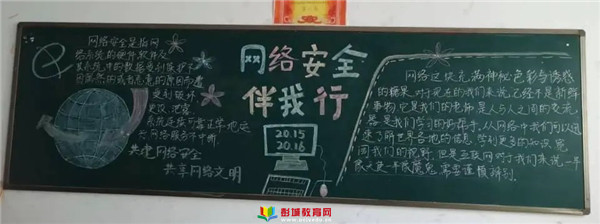 网络安全是指网
络系统的硬件软件及
其系统中的数据受到保护不
因偶然的或者恶意的原因而遭
受到破坏
更改 泄露
系统连续可靠正常地运
行 网络服务不中断
共建网络安全
共享网络文明
网络安全
伴我行
20.15
20.16
网络这块充满神秘色彩与诱惑
的糖果 对于现在的我们来说已经不是新鲜
事物 它是我们的电脑 是人与人之间的交流
器 是我们学习的好帮手 从网络中我们可以迅
速了解世界各地的信息 学到更多的知识 宽
阔我们的视野 但是互联网对于我们来说 一半
是天使一半是魔鬼 需要谨慎辨别。
彭城教育网